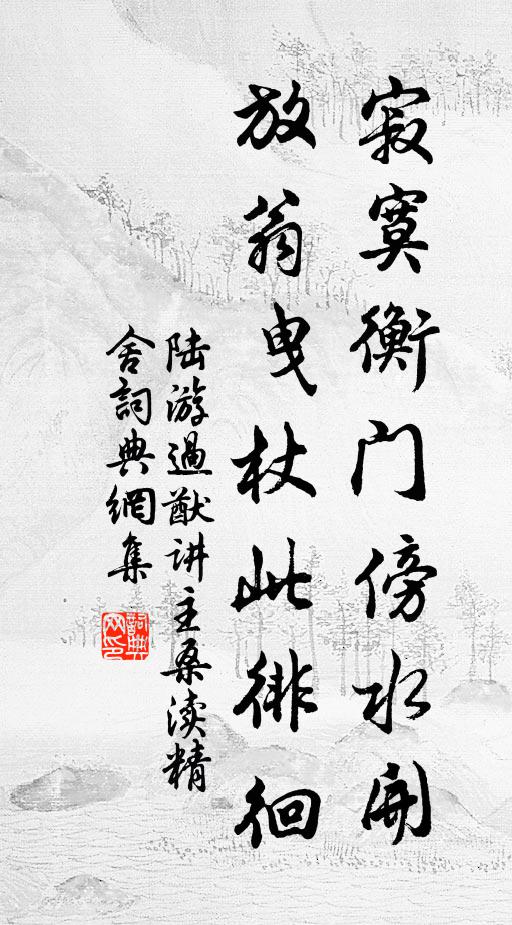 寂寞衡门傍水開
放翁曳杖此徘徊
陆游過猷讲主桑渎精
舍詞典網集
詞典網印